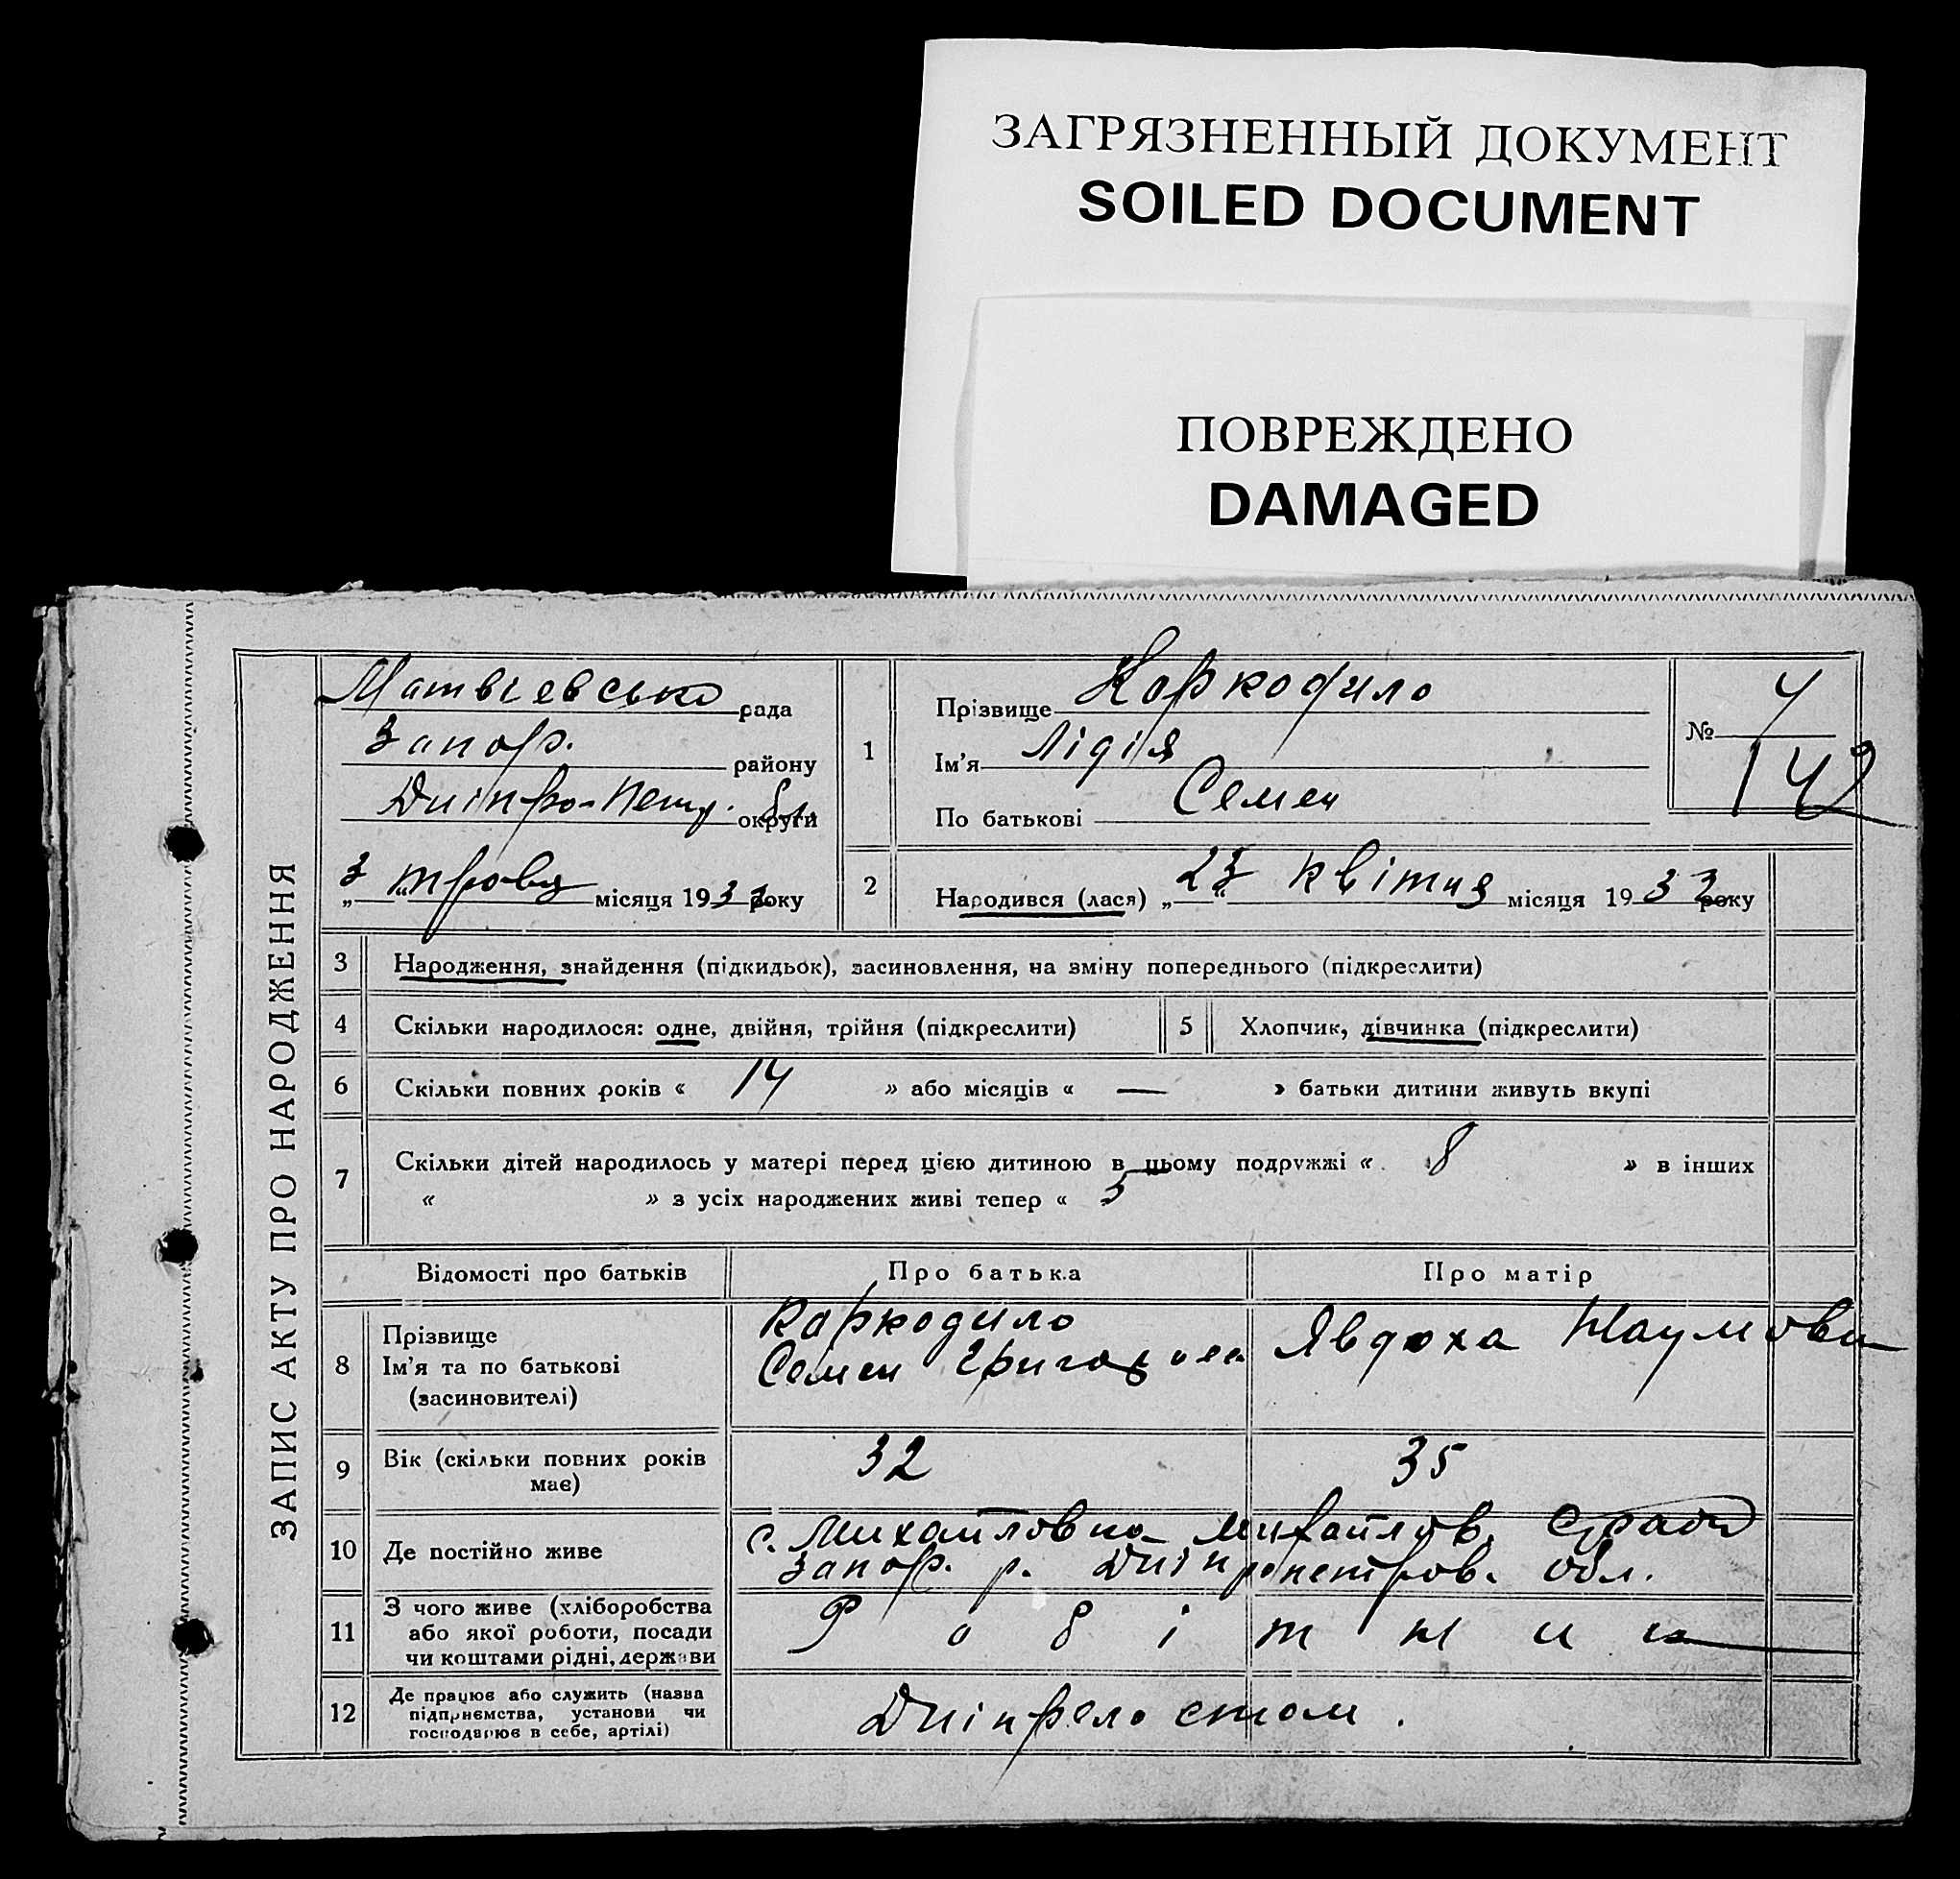 ЗАГРЯЗНЕННЫЙ ДОКУМЕНТ
SOILED DOCUMENT
ПОВРЕЖДЕНО
DAMAGED
ЗАПИС АКТУ ПРО НАРОДЖЕННЯ
Матвієвсько рада
Запор. району
Дніпро-Петр. округи
„3“ травня місяця 1933 року
1
Прізвище Каркодило
Ім'я Лідія
По батькові Семен
№ 4
142
2
Народився (лася) „23“ квітня місяця 1933 року
3 Народження, знайдення (підкидьок), засиновлення, на зміну попереднього (підкреслити)
4 Скільки народилося: одне, двійня, трійня (підкреслити)
5 Хлопчик, дівчинка (підкреслити)
6 Скільки повних років « 14 » або місяців « — » батьки дитини живуть вкупі
7 Скільки дітей народилось у матері перед цією дитиною в цьому подружжі « 8 » в інших
« » з усіх народжених живі тепер « 5
Відомості про батьків Про батька Про матір
8 Прізвище
Ім'я та по батькові
(засиновителі)
Каркодило
Семен
Явдоха Наумовн
9 Вік (скільки повних років
має)
32 35
10 Де постійно живе
с. Михайловка Михайлов. с/ради
Запор. р. Дніпропетров. обл.
11 З чого живе (хліборобства
або якої роботи, посади
чи коштами рідні, держави
Робітник
12 Де працює або служить (назва
підприємства, установи чи
господарює в себе, артілі)